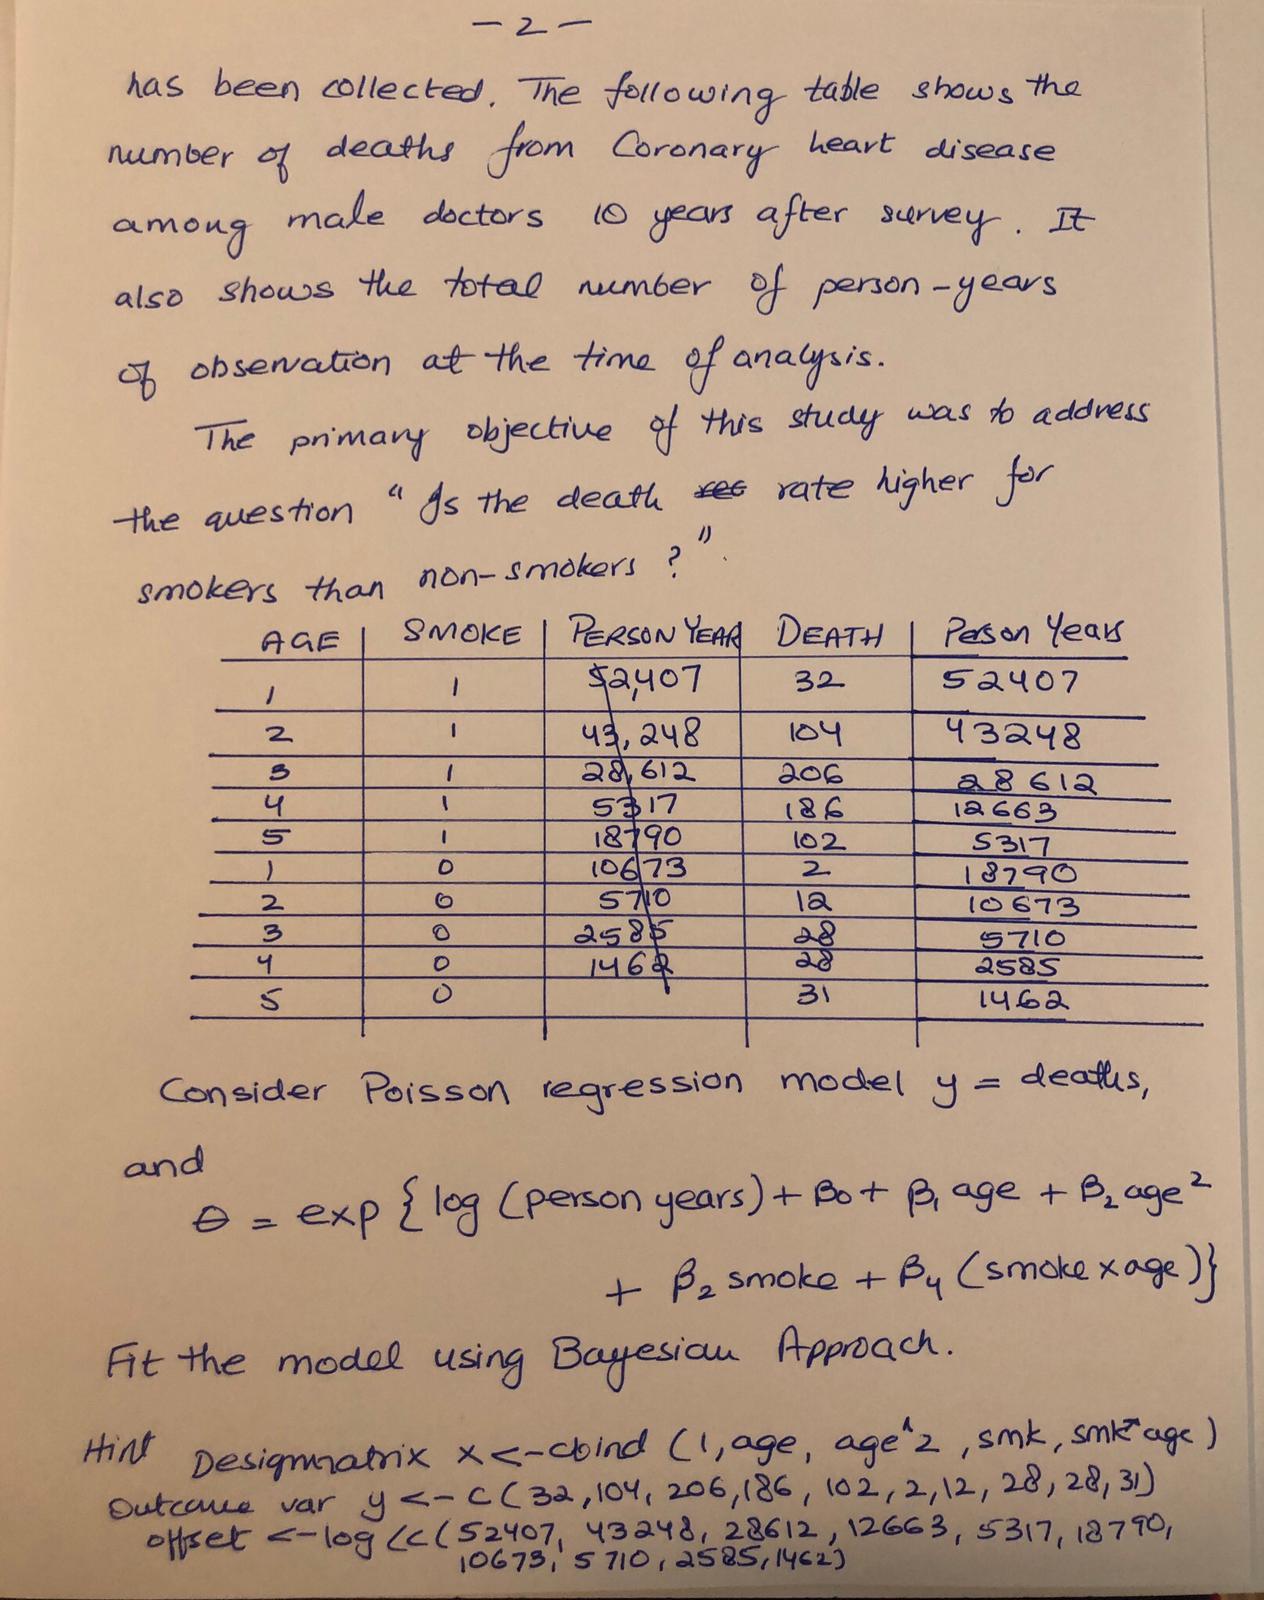 - 2 -
has been collected. The following table shows the
number of deaths from Coronary heart disease
among male doctors 10 years after survey. It
also shows the total number of person-years
of observation at the time of analysis.
The primary objective of this study was to address
the question "Is the death rate higher for
smokers than non-smokers?".
AGE | SMOKE | PERSON YEAR | DEATH | Person Years
1 | 1 | 52,407 | 32 | 52407
2 | 1 | 43,248 | 104 | 43248
3 | 1 | 28,612 | 206 | 28612
4 | 1 | 5317 | 186 | 12663
5 | 1 | 18790 | 102 | 5317
1 | 0 | 10673 | 2 | 18790
2 | 0 | 5710 | 12 | 10673
3 | 0 | 2585 | 28 | 5710
4 | 0 | 1462 | 28 | 2585
5 | 0 | | 31 | 1462
Consider Poisson regression model y = deaths,
and
θ = exp { log (person years) + β0 + β1 age + β2 age²
+ β2 smoke + β4 (smoke x age)}
Fit the model using Bayesian Approach.
Hint Designmatrix x <- cbind (1, age, age^2, smk, smk*age)
Outcome var y <- c(32, 104, 206, 186, 102, 2, 12, 28, 28, 31)
offset <- log (c(52407, 43248, 28612, 12663, 5317, 18790,
10673, 5710, 2585, 1462)